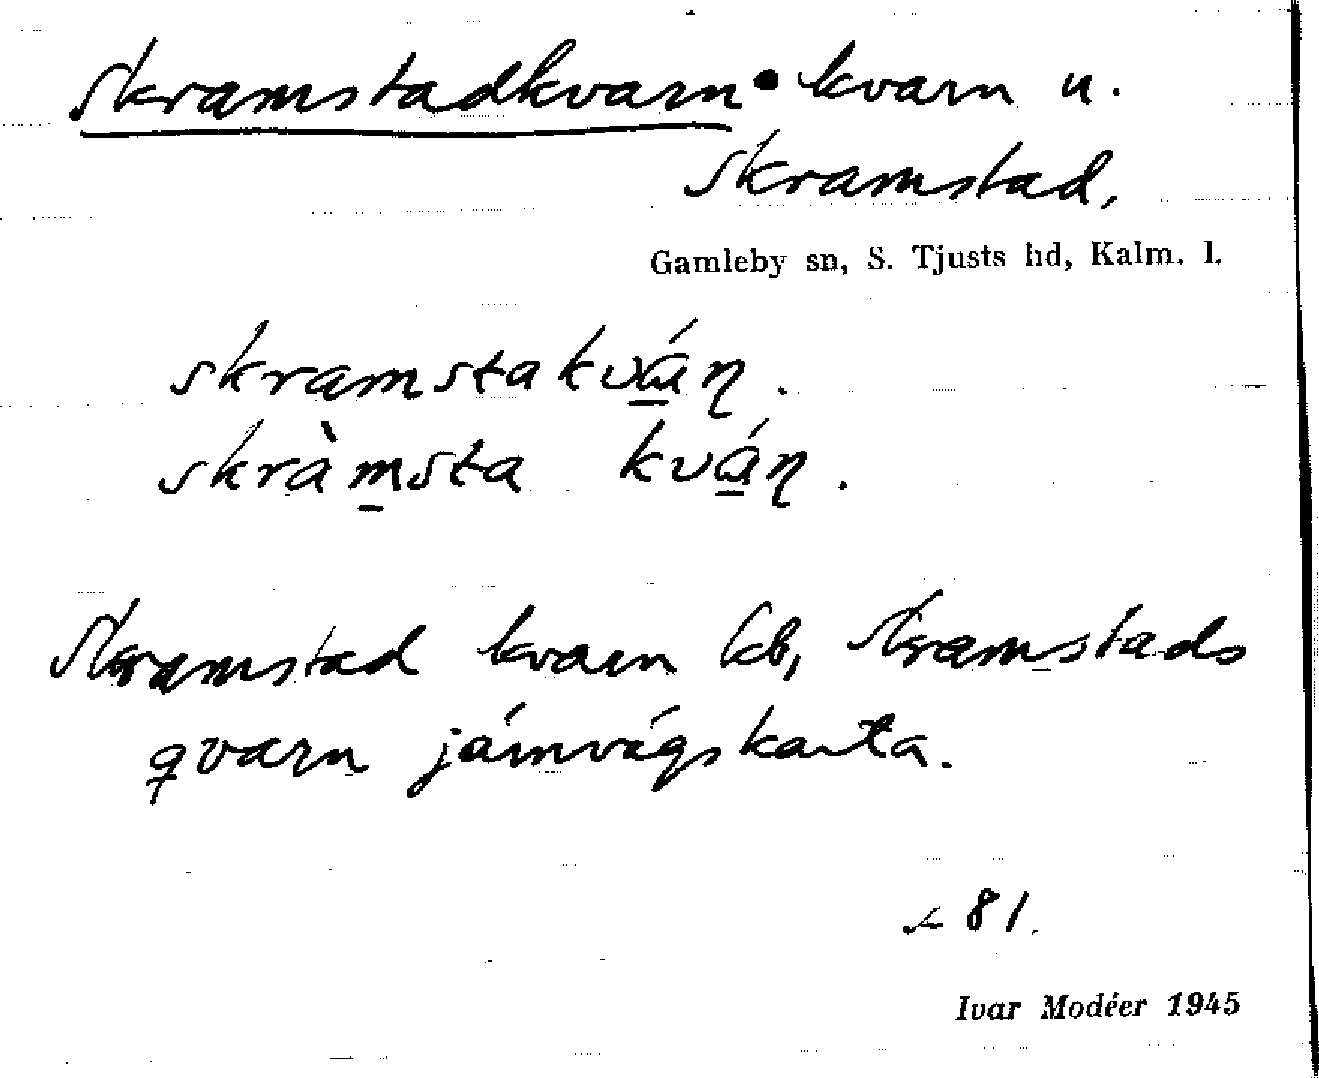 Skramstadkvarn • kvarn u.
Skramstad,
Gamleby sn, S. Tjusts hd, Kalm. l.
skramstakvá̱ɳ.
skràm̱sta kvá̱ɳ.
Skramstad kvarn kb, Skramstads
qvarn järnvägskarta.
81.
Ivar Modéer 1945